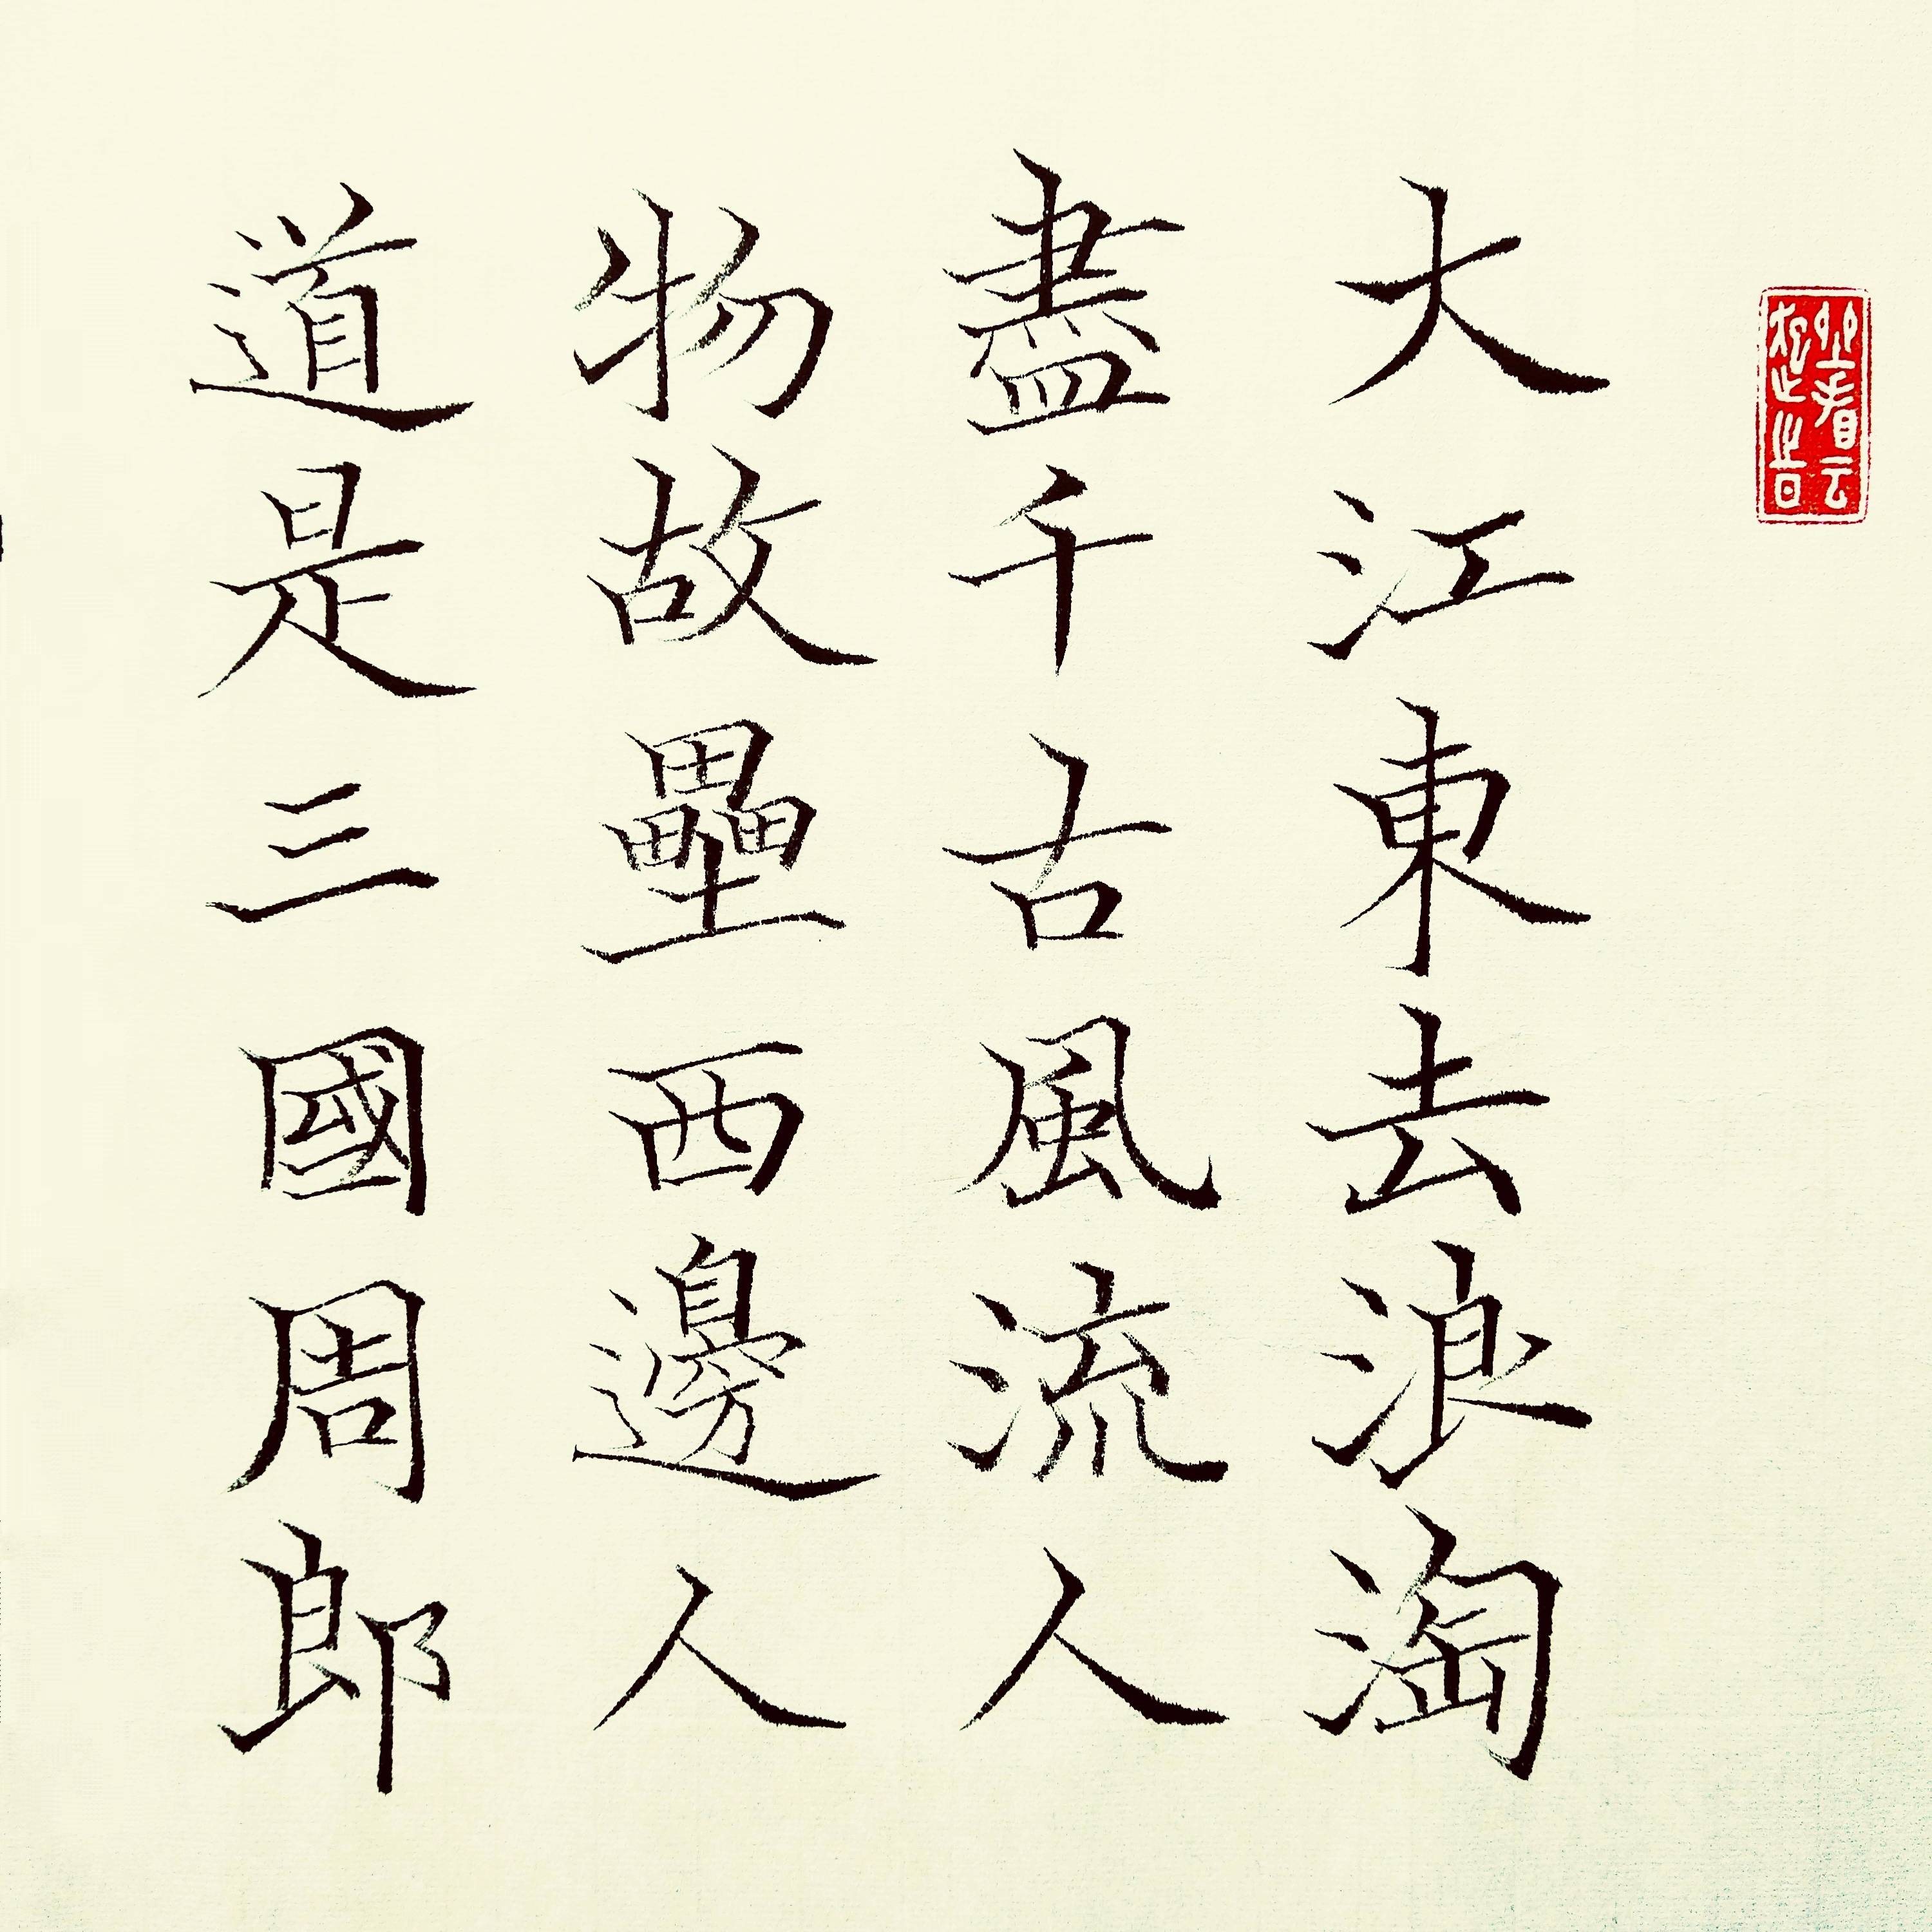 大江東去浪淘
盡千古風流人
物故壘西邊人
道是三國周郎
坐看云起時